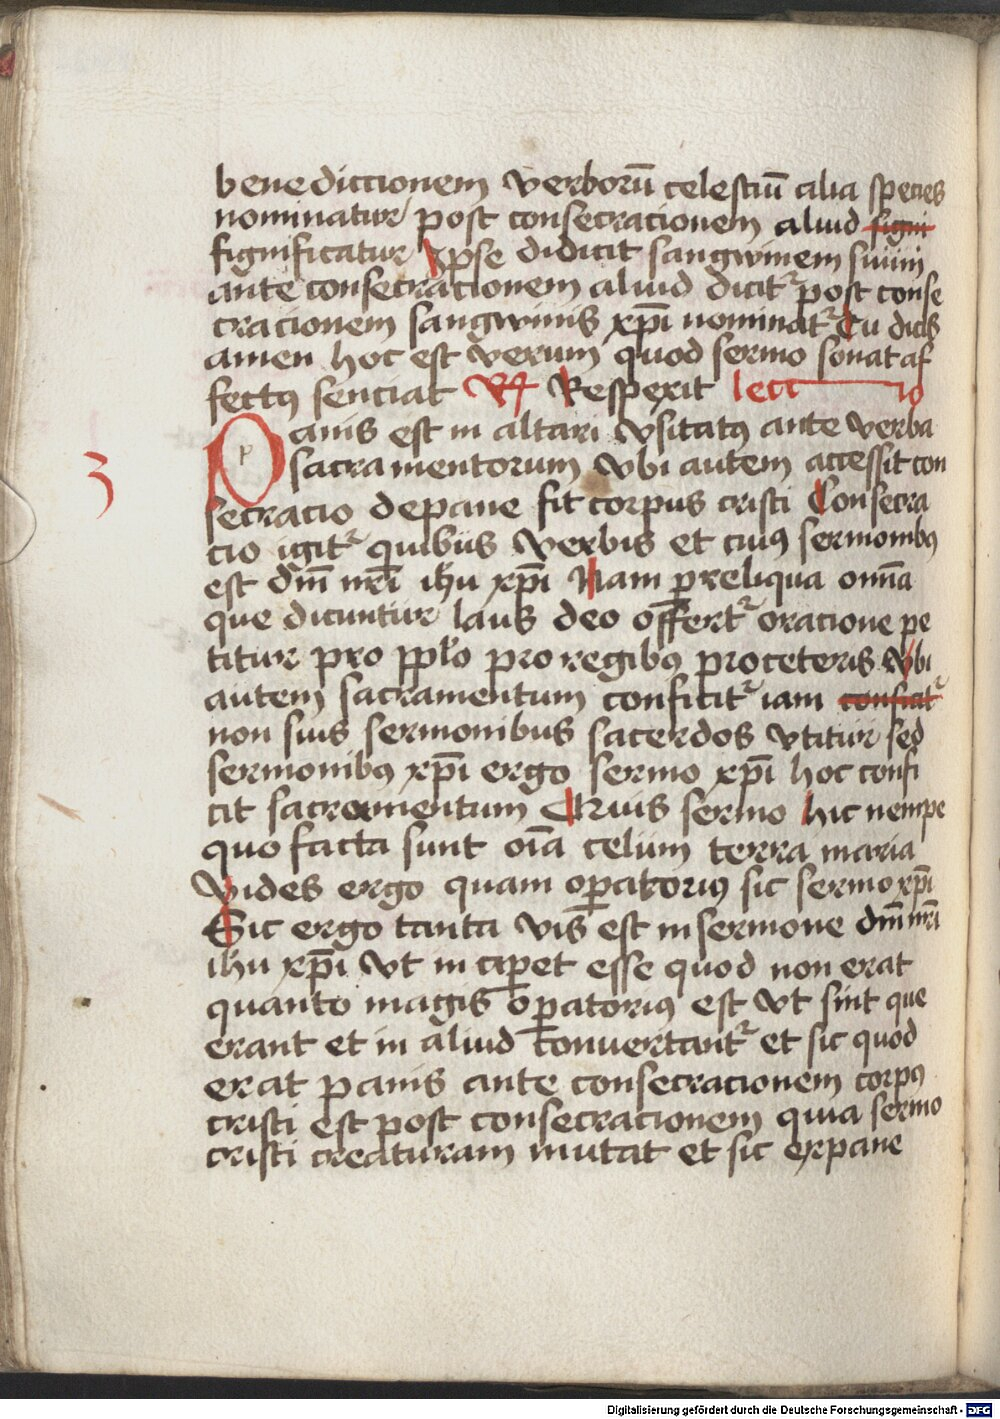 benediccionem verborū celestiū alia species
nominatur post consecracionem aliud signi
significatur Ipse didicit sangwinem suum
ante consecracionem aliud dicit᷑ post conse
cracionem sangwinis xp̄i nominat᷑ Tu dicis
amen hoc est verum quod sermo sonat af
fectꝯ senciat R̷ Respexit lectio
3
Panis est in altari vsitatꝯ ante verba
sacramentorum vbi autem accessit con
secracio depane fit corpus cristi Consecra
cio igit᷑ quibus verbis et cuiꝯ sermonibꝯ
est dn̄i nr̄i ih̄u xp̄i Nam ꝑ reliqua om̄ia
que dicuntur laus deo offert᷑ oracione pe
titur pro pp̄lo pro regibꝯ pro ceteris vbi
autem sacramentum conficit᷑ iam conficiat᷑
non suis sermonibus sacerdos vtitur sed
sermonibꝯ xp̄i ergo sermo xp̄i hoc confi
cit sacramentum Cuius sermo hic nempe
quo facta sunt oīa celum terra maria
Vides ergo quam oꝑatoriꝯ sic sermo xp̄i
Sic ergo tanta vis est in sermone dn̄i nr̄i
ih̄u xp̄i vt inciꝑet esse quod non erat
quanto magis oꝑatoriꝯ est vt sint que
erant et in aliud conuertant᷑ et sic quod
erat panis ante consecracionem corpꝯ
cristi est post consecracionem quia sermo
cristi creaturam mutat et sic ex pane
Digitalisierung gefördert durch die Deutsche Forschungsgemeinschaft - DFG